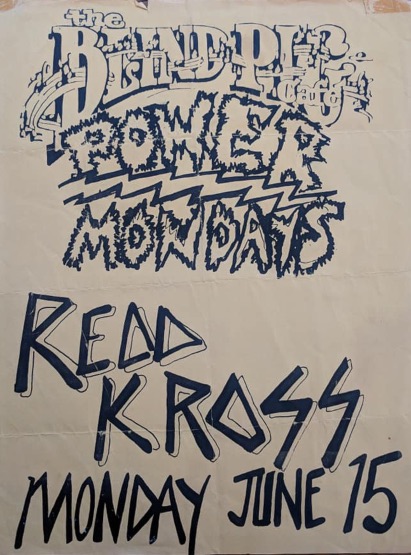 the
BLIND PIG
Cafe
POWER
MONDAYS
READ
KROSS
MONDAY JUNE 15